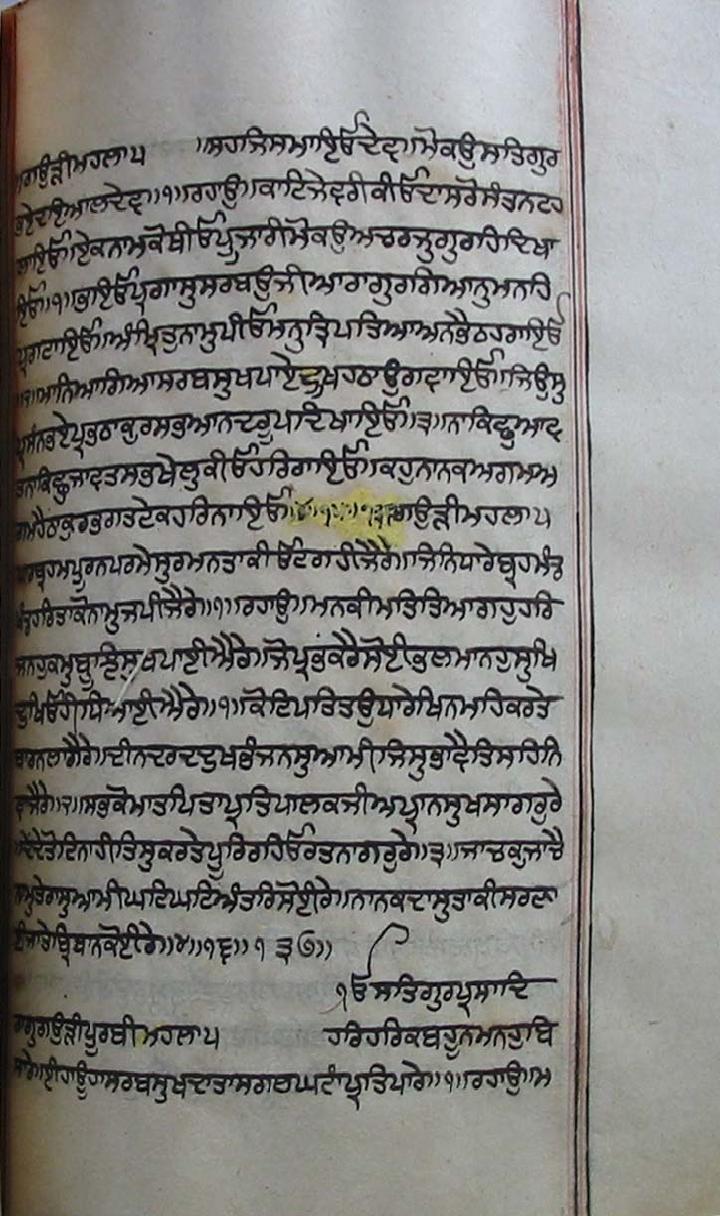 ਗਉੜੀਮਹਲਾ੫ ॥ਸਹਜਿਸਮਾਇਓਦੇਵ॥ਮੋਕਉਸਤਿਗੁਰ
ਭਏਦਇਆਲਦੇਵ॥੧॥ਰਹਾਉ॥ਕਾਟਿਜੇਵਰੀਕੀਓਦਾਸਰੋਸੰਤਨਟਹ
ਲਾਇਓ॥ਏਕਨਾਮਕੋਥੀਓਪੂਜਾਰੀਮੋਕਉਅਚਰਜੁਗੁਰਹਿਦਿਖਾ
ਇਓ॥੧॥ਭਇਓਪ੍ਰਗਾਸੁਸਰਬਉਜੀਆਰਾਗੁਰਗਿਆਨੁਮਨਹਿ
ਪ੍ਰਗਟਾਇਓ॥ਅੰਮ੍ਰਿਤੁਨਾਮੁਪੀਓਮਨੁਤ੍ਰਿਪਤਿਆਅਨਭੈਠਹਰਾਇਓ
॥੨॥ਮਾਨਿਆਗਿਆਸਰਬਸੁਖਪਾਏਦੂਖਹਠਾਉਗਵਾਇਓ॥ਜਿਉਸੁ
ਪ੍ਰਸੰਨਭਏਪ੍ਰਭਠਾਕੁਰਸਭੁਆਨਦਰੂਪੁਦਿਖਾਇਓ॥੩॥ਨਾਕਿਛੁਆਵ
ਤਨਾਕਿਛੁਜਾਵਤਸਭਖੇਲੁਕੀਓਹਰਿਰਾਇਓ॥ਕਹੁਨਾਨਕਅਗਮਅ
ਗਮਹੈਠਾਕੁਰਭਗਤਟੇਕਹਰਿਨਾਇਓ॥੪॥੧੫॥ ਗਉੜੀਮਹਲਾ੫
ਪਾਰਬ੍ਰਹਮਪੂਰਨਪਰਮੇਸੁਰਮਨਤਾਕੀਓਟਗਹੀਜੈਰੇ॥ਜਿਨਿਧਾਰੇਬ੍ਰਹਮੰਡ
ਖੰਡਹਰਿਤਾਕੋਨਾਮੁਜਪੀਜੈਰੇ॥੧॥ਰਹਾਉ॥ਮਨਕੀਮਤਿਤਿਆਗਹੁਹਰਿ
ਜਨਹੁਕਮੁਬੂਝਿਸੁਖਪਾਈਐਰੇ॥ਜੋਪ੍ਰਭੁਕਰੈਸੋਈਭਲਮਾਨਹੁਸੁਖਿ
ਦੁਖਿਓਹੀਧਿਆਈਐਰੇ॥੧॥ਕੋਟਿਪਤਿਤਉਧਾਰੇਖਿਨਮਹਿਕਰਤੇ
ਬਾਰਨਲਾਗੈਰੇ॥ਦੀਨਦਰਦਦੁਖਭੰਜਨਸੁਆਮੀਜਿਸੁਭਾਵੈਤਿਸਹਿਨਿ
ਵਾਜੈਰੇ॥੨॥ਸਭਕੋਮਾਤਪਿਤਾਪ੍ਰਤਿਪਾਲਕਜੀਅਪ੍ਰਾਨਸੁਖਸਾਗਰੁਰੇ
ਦੇਂਦੇਤੋਟਿਨਾਹੀਤਿਸੁਕਰਤੇਪੂਰਿਰਹਿਓਰਤਨਾਗਰੁਰੇ॥੩॥ਜਾਚਕੁਜਾਚੈ
ਨਾਮੁਤੇਰਾਸੁਆਮੀਘਟਿਘਟਿਅੰਤਰਿਸੋਈਰੇ॥ਨਾਨਕਦਾਸੁਤਾਕੀਸਰਣਾ
ਈਜਾਤੇਬ੍ਰਿਥਾਨਕੋਈਰੇ॥੪॥੧੬॥੧੩੭॥
੧ਓਸਤਿਗੁਰਪ੍ਰਸਾਦਿ
ਰਾਗੁਗਉੜੀਪੂਰਬੀਮਹਲਾ੫ ਹਰਿਹਰਿਕਬਹੂਨਮਨਹੁਬਿ
ਸਾਰੇ॥ਈਹਾਊਹਾਸਰਬਸੁਖਦਾਤਾਸਗਲਘਟਾਂਪ੍ਰਤਿਪਾਰੇ॥੧॥ਰਹਾਉ॥ਮ